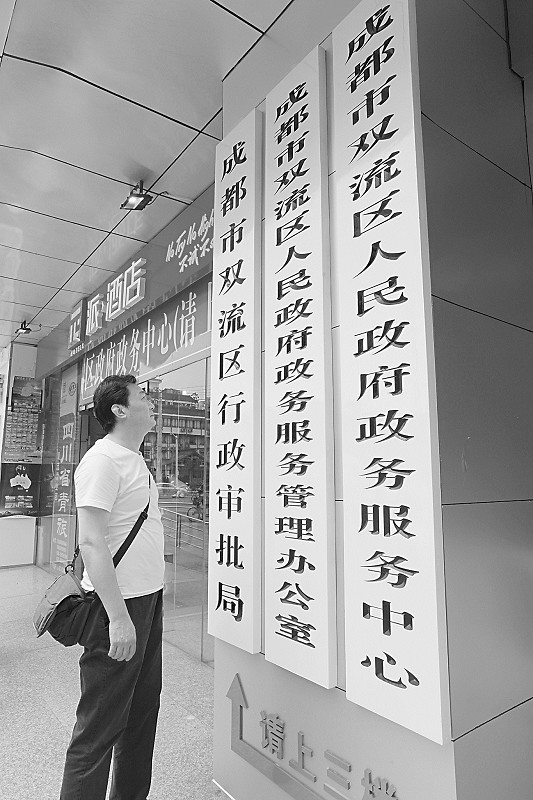 成都市双流区行政审批局
成都市双流区人民政府政务服务管理办公室
成都市双流区人民政府政务服务中心
请上三楼
派酒店
区政府政务中心(请
四川省青旅